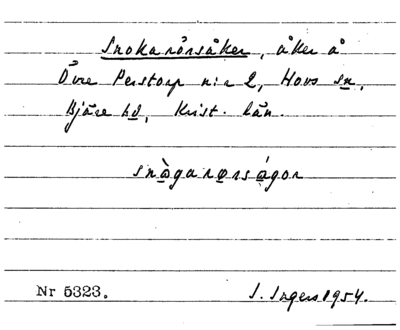 Snokarörsåker, åker å
Övre Perstorp n:r 2, Hovs sn,
Bjäre hd, Krist. län.
snågarørságor
Nr 5323.
I. Ingers 1954.